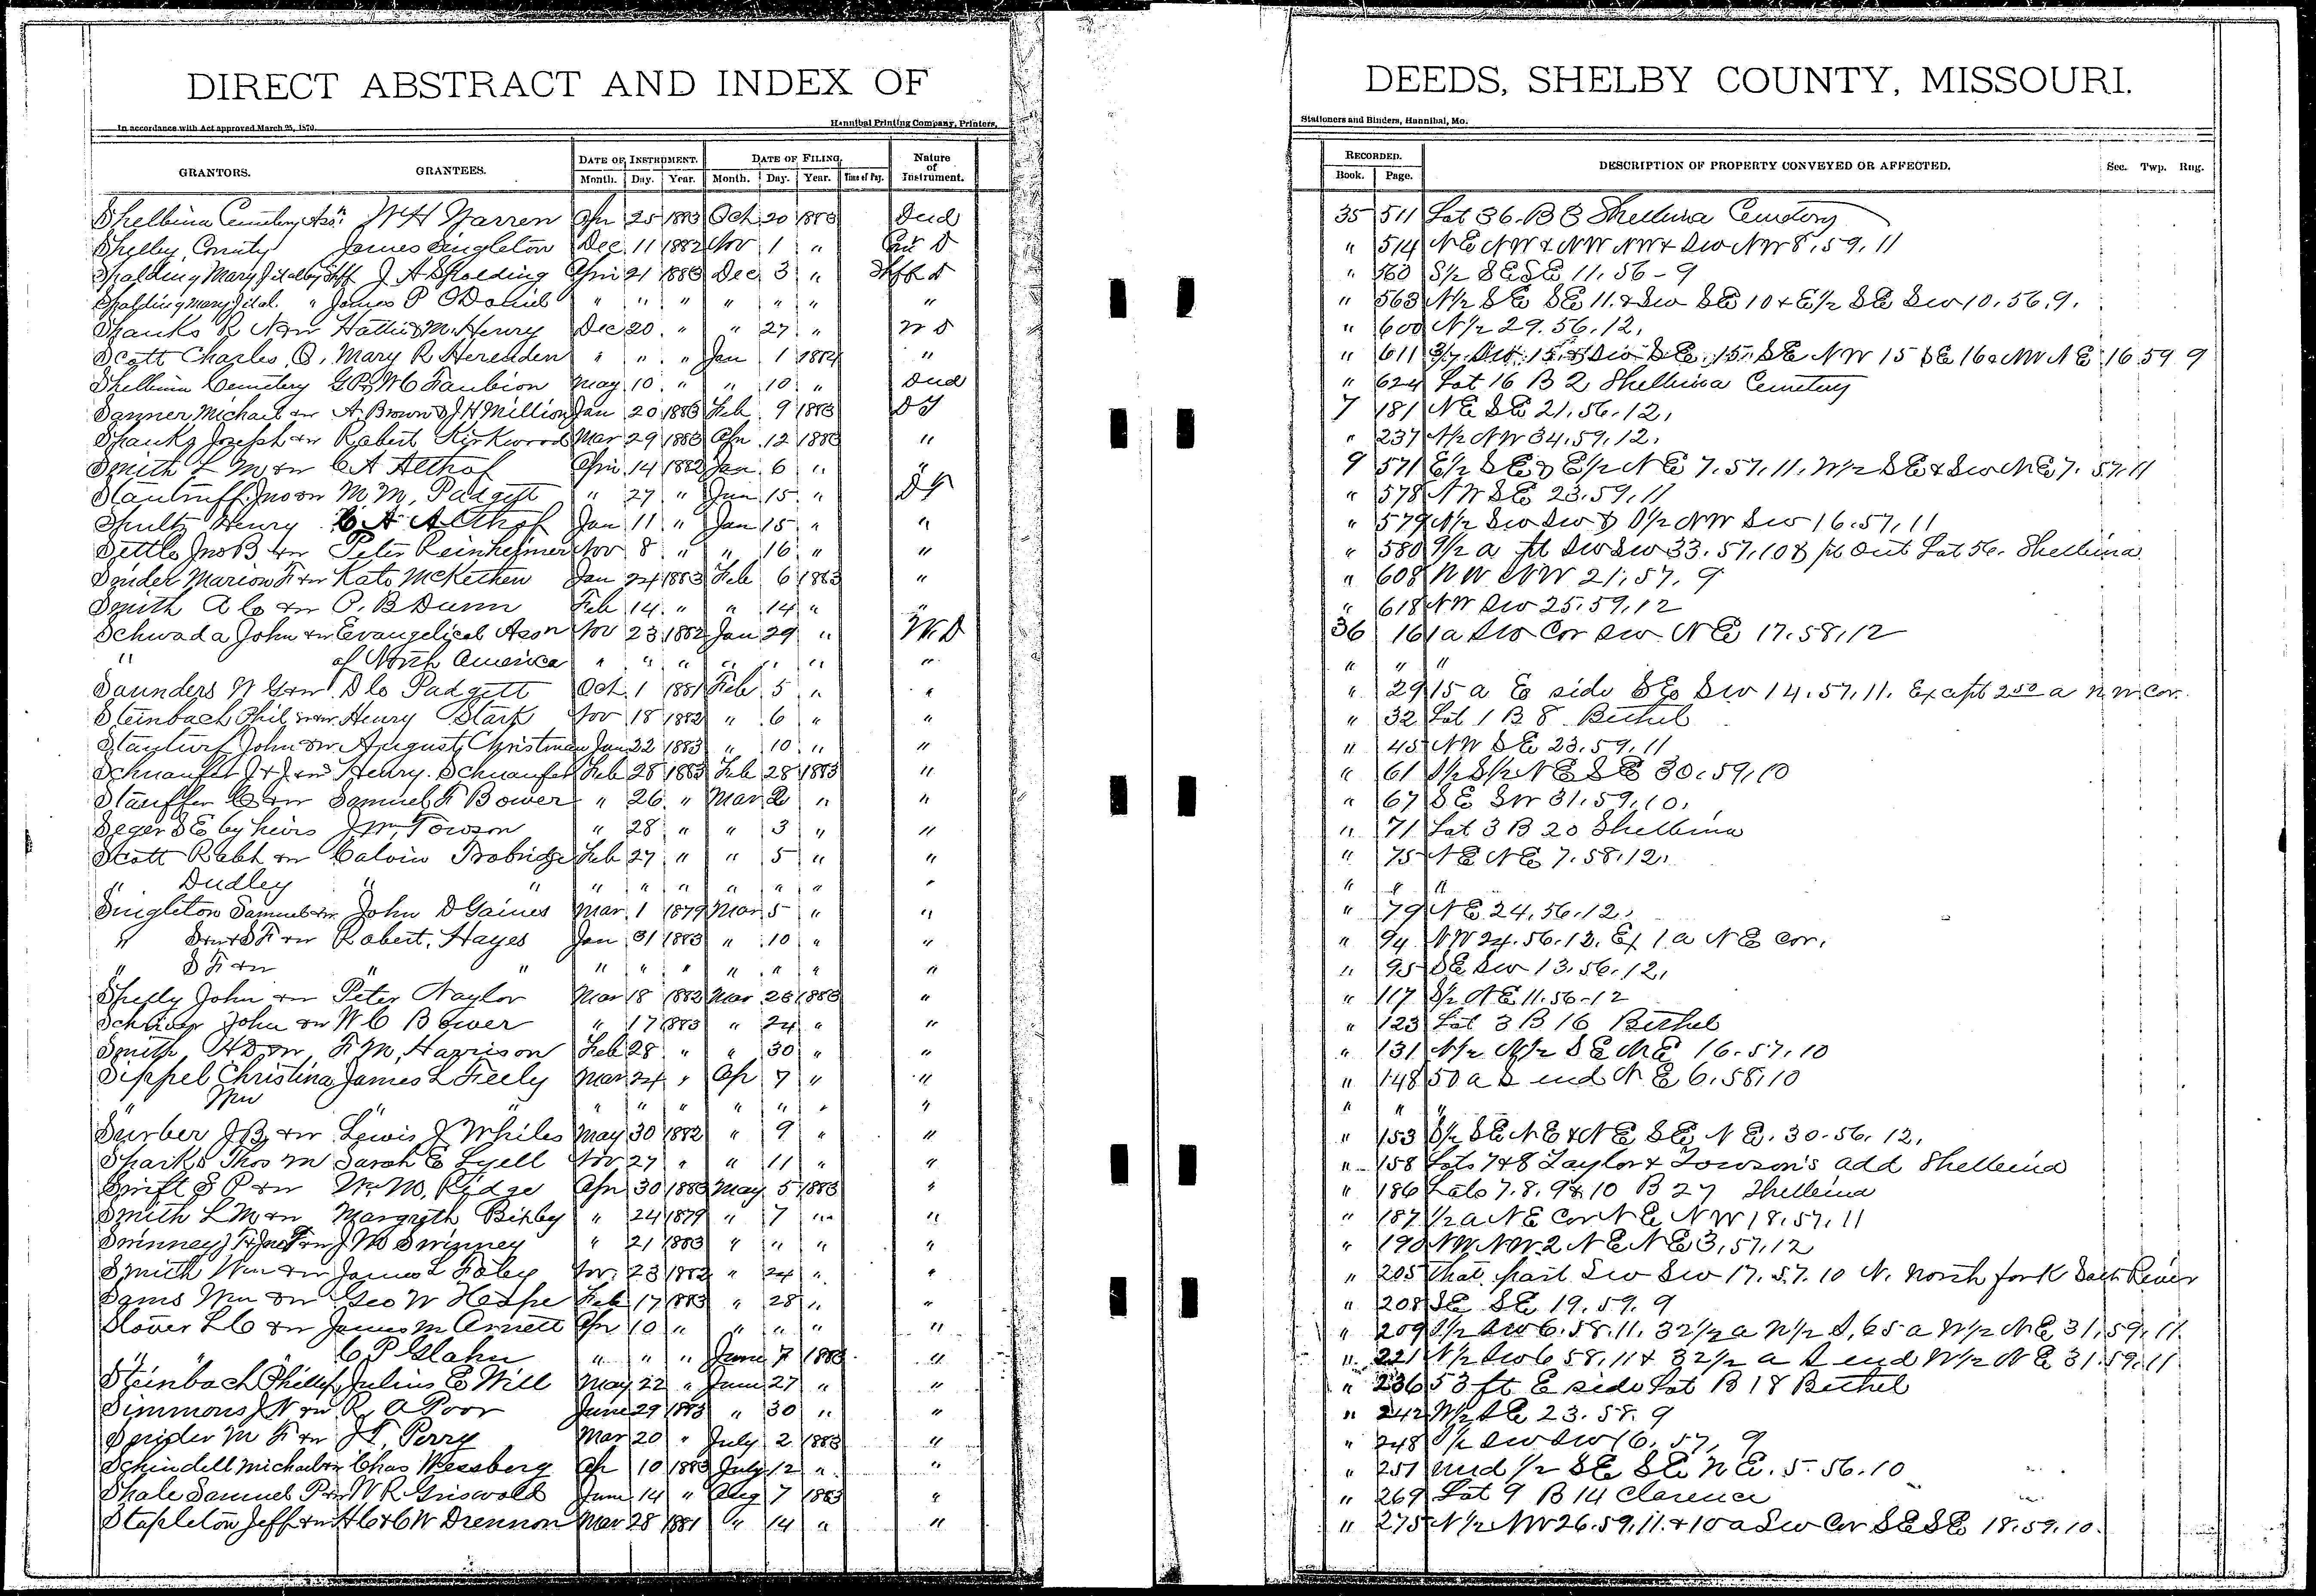 DIRECT ABSTRACT AND INDEX OF DEEDS, SHELBY COUNTY, MISSOURI.
In accordance with Act approved March 25, 1870. Hannibal Printing Company, Printers, Stationers and Binders, Hannibal, Mo.
GRANTORS. GRANTEES. DATE OF INSTRUMENT. DATE OF FILING. Nature of Instrument. RECORDED. DESCRIPTION OF PROPERTY CONVEYED OR AFFECTED. Sec. Twp. Rng.
Month. Day. Year. Month. Day. Year. Time of Day. Book. Page.
Shelbina Cemetery Assn. W H Warren Apr 25 1883 Oct 20 1883 Deed 35 511 Lot 36 B 3 Shelbina Cemetery
Shelby County James Singleton Dec 11 1882 Nov 1 " D " 514 NE NW & NW NW & SW NW 8, 59, 11
Spalding Mary J et al by Shff J A Spalding Apr 21 1883 Dec 3 " Shff D " 560 S½ SE SE 11, 56 - 9
Spalding Mary J et al " James P ODaniel " " " " " " " " 563 N½ SE SE 11 & SW SE 10 & E½ SE SW 10. 56. 9.
Spanks R N & w Hattie M. Henry Dec 20 " " 27 " W D " 600 N½ 29. 56. 12.
Scott Charles Q. Mary R Herenden " " " Jan 1 1884 " " 611 SE NW 15 SE 16 NW NE 16 59 9
Shelbina Cemetery W C Faubion May 10 " " 10 " Deed " 624 Lot 16 B 2 Shelbina Cemetery
Sanner Michael & w A. Brown & J H Million Jan 20 1883 Feb 9 1883 D T 7 181 NE SE 21. 56. 12.
Spanks Joseph & w Robert Kirkwood Mar 29 1883 Apr 12 1883 " " 237 N½ NW 34, 59, 12.
Smith L M & w C A Althof Apr 14 1882 Jan 6 " " 9 571 E½ SE & E½ NE 7. 57. 11. W½ SE & SW NE 7. 57. 11
Stantruff Jno & w M M. Padgett " 27 " Jan 15 " D T " 578 NW SE 23. 59. 11
Shultz Henry C A Althof Jan 11 " Jan 15 " " " 579 N½ SW SW & S½ NW SW 16. 57. 11
Settle Jno B & w Peter Reinheimer Nov 8 " " 16 " " " 580 9½ a pt SW SW 33. 57. 10 & pt Out Lot 56. Shelbina
Snider Marion F & w Kate McKethen Jan 24 1883 Feb 6 1883 " " 608 NW NW 21, 57, 9
Smith A C & w P. B Dunn Feb 14 " " 14 " " " 618 NW SW 25. 59. 12
Schwada John & w Evangelical Asson Nov 23 1882 Jan 29 " W. D 36 16 1 a SW Cor SW NE 17. 58. 12
" of North America " " " " " " " " " "
Saunders W G & w D C Padgett Oct 1 1881 Feb 5 " " " 29 15 a E side SE SW 14. 57. 11. Except 2 50 a NW cor.
Steinbach Phil & w Henry Stark Nov 18 1882 " 6 " " " 32 Lot 1 B 8 Bethel
Stanturf John & w August Christman Jan 22 1883 " 10 " " " 45 NW SE 23. 59. 11
Schnaufer J & J & w Henry Schnaufer Feb 28 1883 Feb 28 1883 " " 61 S½ S½ NE SE 30. 59, 10
Stauffer C & w Samuel F Bower " 26 " Mar 2 " " " 67 SE SW 31. 59, 10.
Seger S E by heirs J. M. Towson " 28 " " 3 " " " 71 Lot 3 B 20 Shelbina
Scott Robt & w Calvin Trobridge Feb 27 " " 5 " " " 75 NE NE 7. 58. 12.
" Dudley " " " " " " " " " " " "
Singleton Samuel & w John D Gaines Mar 1 1879 Mar 5 " " " 79 NE 24, 56. 12.
" S & w & S F & w Robert. Hayes Jan 31 1883 " 10 " " " 94 NW 24. 56. 12. Ex 1 a NE cor.
" S F & w " " " " " " " " " " 95 SE SW 13. 56. 12.
Sheely John & w Peter Naylor Mar 18 1882 Mar 23 1883 " " 117 S½ NE 11. 56 - 12
Schriver John & w W C Bower " 17 1883 " 24 " " " 123 Lot 3 B 16 Bethel
Smith H D & w F. M. Harrison Feb 28 " " 30 " " " 131 N½ N½ SE NE 16. 57. 10
Sippel Christina James L Feely Mar 24 " Ap 7 " " " 148 50 a S end NE 6. 58. 10
" Wm " " " " " " " " " " " "
Surber J B. & w Lewis J Whiles May 30 1882 " 9 " " " 153 S½ SE NE & NE SE NE. 30. 56. 12.
Sparks Thos M Sarah E Lyell Nov 27 " " 11 " " " 158 Lots 7 & 8 Taylor & Towson's add Shelbina
Swift S P & w W. M. Ridge Apr 30 1883 May 5 1883 " " 186 Lots 7. 8. 9 & 10 B 27 Shelbina
Smith L M & w Margreth Bixby " 24 1879 " 7 " " " 187 ½ a NE Cor NE NW 18. 57. 11
Swinney J F & Jno & w J M Swinney " 21 1883 " " " " " 190 NW NW 2 NE NE 3, 57, 12
Smith Wm & w James L Foley Nov 23 1882 " 24 " " " 205 That part SW SW 17. 57. 10 N. North fork Salt River
Sams Wm & w Geo W Heashe Feb 17 1883 " 28 " " " 208 SE SE 19. 59. 9
Slover L C & w James M Arnett Apr 10 " " " " " " 209 S½ SW 6. 58. 11. 32½ a N½ S. 65 a W½ NE 31, 59, 11.
" " C P Glahn " " " June 7 1883 " " 221 N½ SW 6 58. 11 & 32½ a S end W½ NE 31. 59. 11
Steinbach Phillip Julius E Will May 22 " June 27 " " " 236 53 ft E side Lot B 18 Bethel
Simmons J N & w R. A Poor June 29 1883 " 30 " " " 242 W½ SE 23. 58. 9
Snider M F & w J T. Perry Mar 20 " July 2 1883 " " 248 S½ SW SW 16. 57. 9
Schindell Michael & w Chas Wessberg Ap 10 1883 July 12 " " " 251 und ½ SE SE NE. 5. 56. 10
Shale Samuel P & w W R Griswold June 14 " Aug 7 1883 " " 269 Lot 9 B 14 Clarence
Stapleton Jeff & w H C & C W Drennon Mar 28 1881 " 14 " " " 275 N½ NW 26. 59. 11. & 10 a SW Cor SE SE 18. 59. 10.